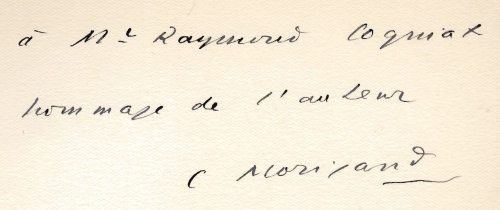 à Mr Raymond Cogniat
hommage de l'auteur
C Morisand